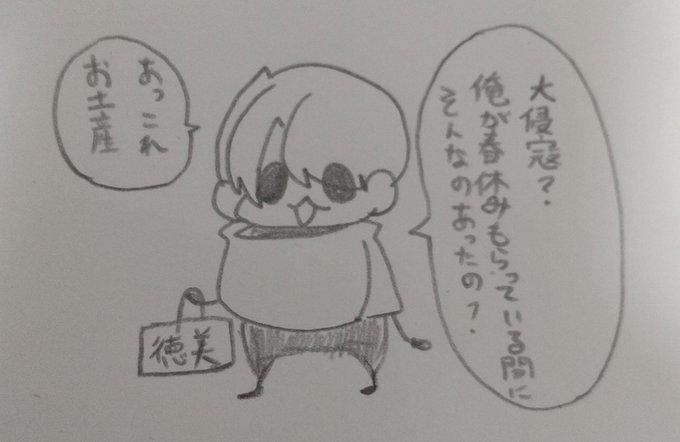 大侵寇？
俺が春休みもらっている間に
そんなのあったの？
あっこれ
お土産
徳美